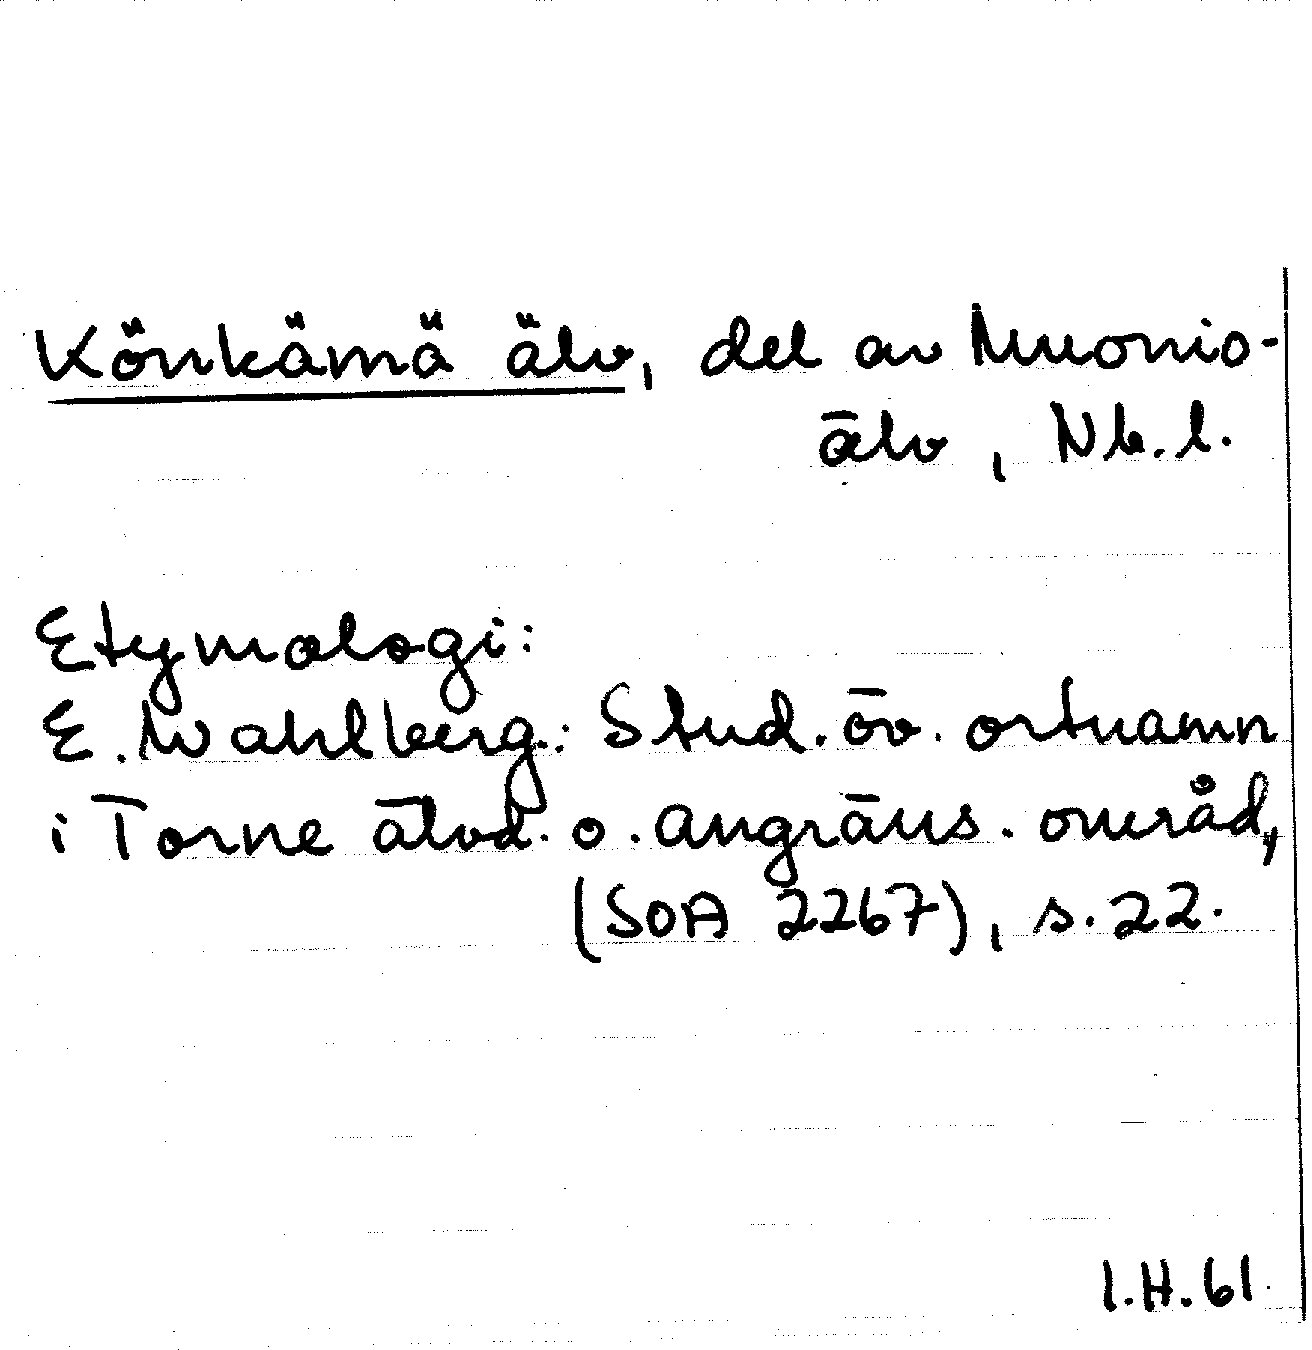 Könkämä älv, del av Muonio-
älv, Nb.l.
Etymologi:
E. Wahlberg: Stud. öv. ortnamn
i Torne älvd. o. angräns. områd,
(SOA 2267), s. 22.
I.H. 61.